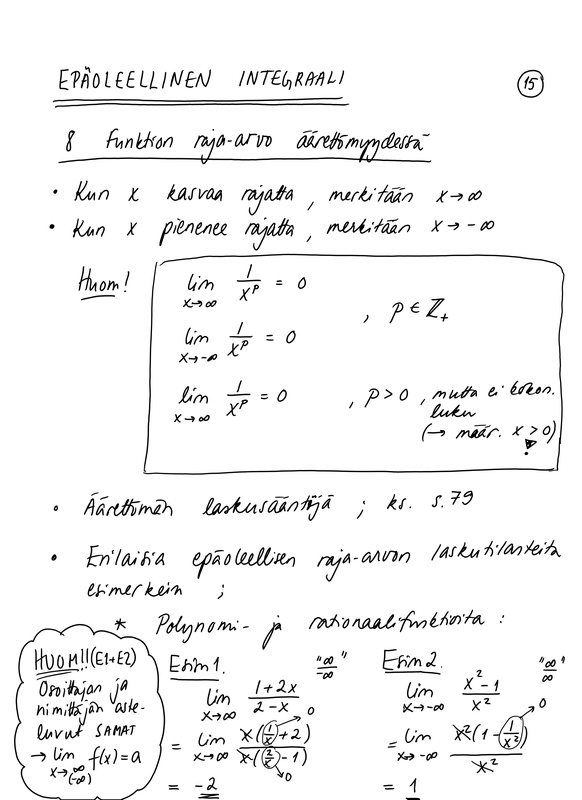 EPÄOLEELLINEN INTEGRAALI
15
8 Funktion raja-arvo äärettömyydessä
• Kun x kasvaa rajatta, merkitään x→∞
• Kun x pienenee rajatta, merkitään x→-∞
Huom!
lim x→∞ 1/x^p = 0
lim x→-∞ 1/x^p = 0
, p ∈ ℤ₊
lim x→∞ 1/x^p = 0 , p > 0, mutta ei kokon.
luku
(→ määr. x > 0)
!
• Äärettömän laskusääntöjä ; ks. s.79
• Erilaisia epäoleellisen raja-arvon laskutilanteita
esimerkein ;
* Polynomi- ja rationaalifunktioita :
HUOM!! (E1+E2)
Osoittajan ja
nimittäjän aste-
luvut SAMAT
→ lim x→∞ (-∞) f(x) = a
Esim 1. "∞/-∞"
lim x→∞ (1+2x)/(2-x)
= lim x→∞ x(1/x+2)/x(2/x-1) →0 →0
= -2
Esim 2. "∞/∞"
lim x→-∞ (x²-1)/x²
= lim x→-∞ x²(1-1/x²)/x² →0
= 1